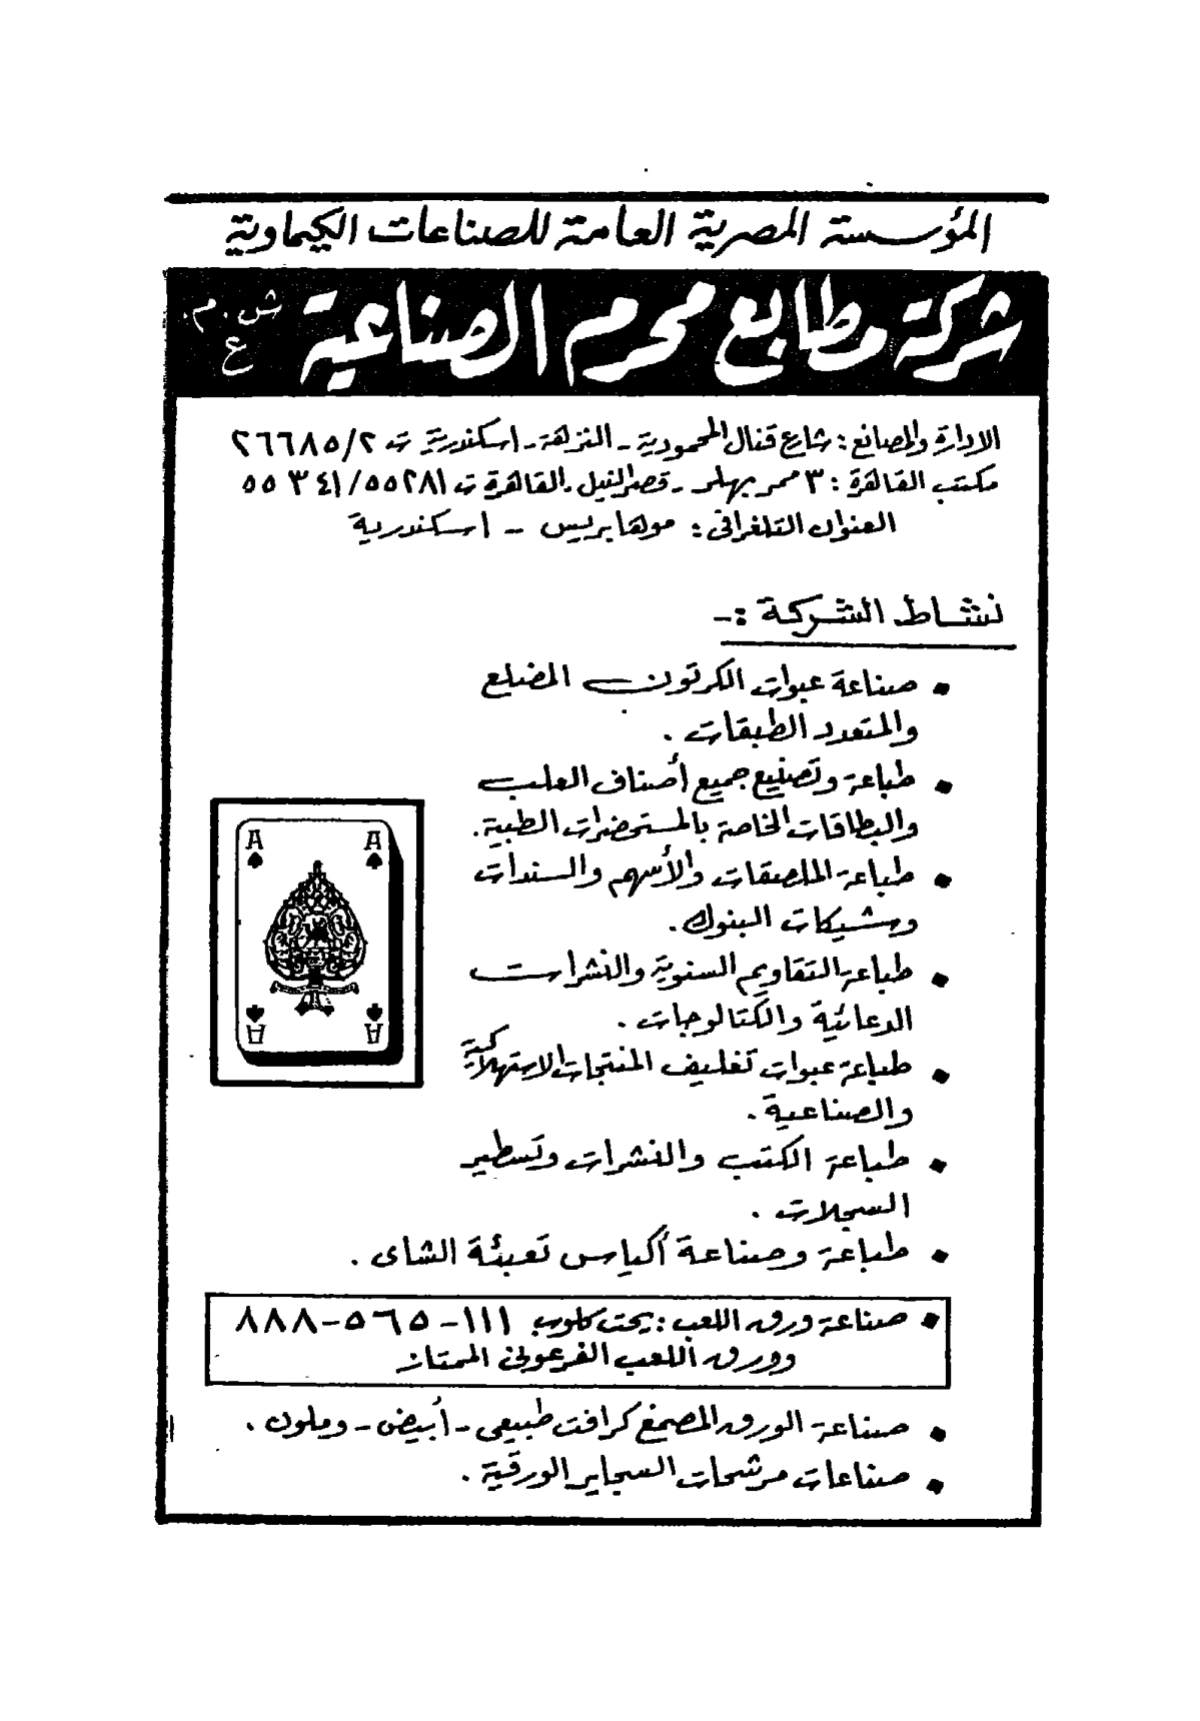 المؤسسة المصرية العامة للصناعات الكيماوية
شركة مطابع محرم الصناعية ش.م.ع
الادارة والمصانع : شارع قنال المحمودية - النزهة - اسكندرية ت ٢٦٦٨٥/٢
مكتب القاهرة : ٣ ممر بهلر - قصر النيل - القاهرة ت ٥٥٣٤١/٥٥٢٨١
العنوان التلغرافى : موهابريس - اسكندرية
نشاط الشركة :-
• صناعة عبوات الكرتون المضلع
والمتعدد الطبقات .
• طباعة وتصنيع جميع أصناف العلب
والبطاقات الخاصة بالمستحضرات الطبية .
• طباعة الملصقات والأسهم والسندات
وشيكات البنوك .
• طباعة التقاويم السنوية والنشرات
الدعائية والكتالوجات .
• طباعة عبوات تغليف المنتجات الاستهلاكية
والصناعية .
• طباعة الكتب والنشرات وتسطير
السجلات .
• طباعة وصناعة أكياس تعبئة الشاى .
A A
A A
• صناعة ورق اللعب : تحت كلوب ١١١-٥٦٥-٨٨٨
وورق اللعب الفرعونى الممتاز
• صناعة الورق المصمغ كرافت طبيعى - أبيض - وملون .
• صناعات مرشحات السجاير الورقية .